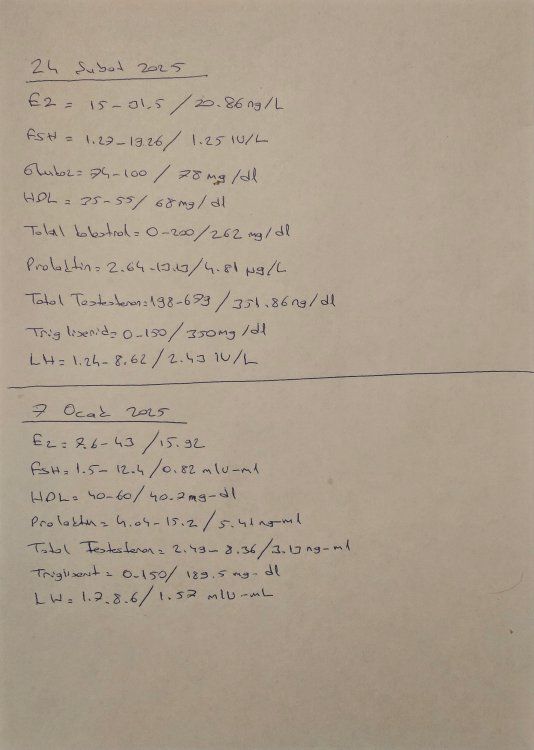 24 Şubat 2025
E2 = 15-31.5 / 20.86 ng/L
FSH = 1.27-19.26 / 1.25 IU/L
Glukoz = 74-100 / 78 mg/dl
HDL = 35-55 / 68 mg/dl
Total kolestrol = 0-200 / 262 mg/dl
Prolaktin = 2.64-13.13 / 4.81 µg/L
Total Testesteron = 198-679 / 351.86 ng/dl
Trigliserid = 0-150 / 350 mg/dl
LH = 1.24-8.62 / 2.43 IU/L
7 Ocak 2025
E2 = 7.6-43 / 15.92
FSH = 1.5-12.4 / 0.82 mIU-ml
HDL = 40-60 / 40.7 mg-dl
Prolaktin = 4.04-15.2 / 5.41 ng-ml
Total Testesteron = 2.49-8.36 / 3.13 ng-ml
Trigliserit = 0-150 / 189.5 mg-dl
LH = 1.7.8.6 / 1.57 mIU-mL